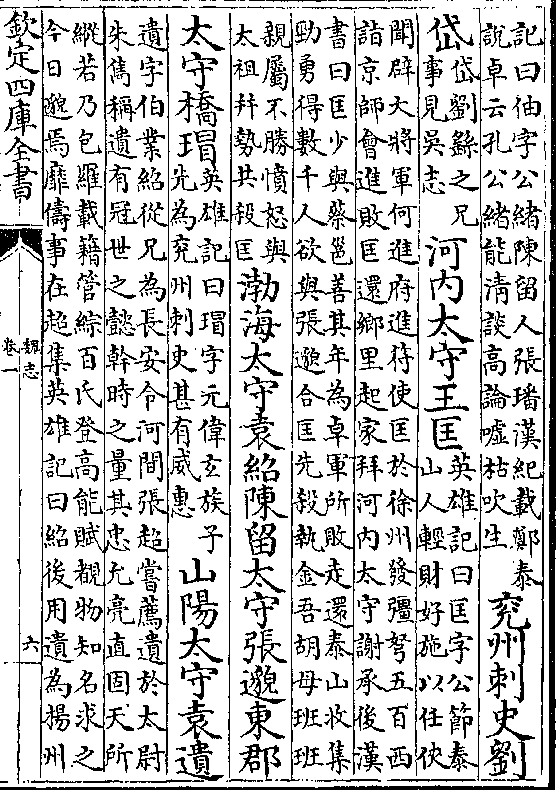 記曰伷字公緒陳留人張璠漢紀載鄭泰
説卓云孔公緒能清談高論噓枯吹生
兖州刺史劉
岱
岱劉繇之兄
事見吳志
河内太守王匡
英雄記曰匡字公節泰
山人輕財好施以任俠
聞辟大將軍何進府進符使匡於徐州發彊弩五百西
詣京師會進敗匡還鄉里起家拜河内太守謝承後漢
書曰匡少與蔡邕善其年為卓軍所敗走還泰山收集
勁勇得數千人欲與張邈合匡先殺執金吾胡母班班
親屬不勝憤怒與
太祖幷勢共殺匡
渤海太守袁紹陳留太守張邈東郡
太守橋瑁
英雄記曰瑁字元偉玄族子
先為兖州刺史甚有威惠
山陽太守袁遺
遺字伯業紹從兄為長安令河間張超嘗薦遺於太尉
朱儁稱遺有冠世之懿幹時之量其忠允亮直固天所
縱若乃包羅載籍管綜百氏登高能賦覩物知名求之
今日邈焉靡儔事在超集英雄記曰紹後用遺為揚州
欽定四庫全書
魏志
卷一
六